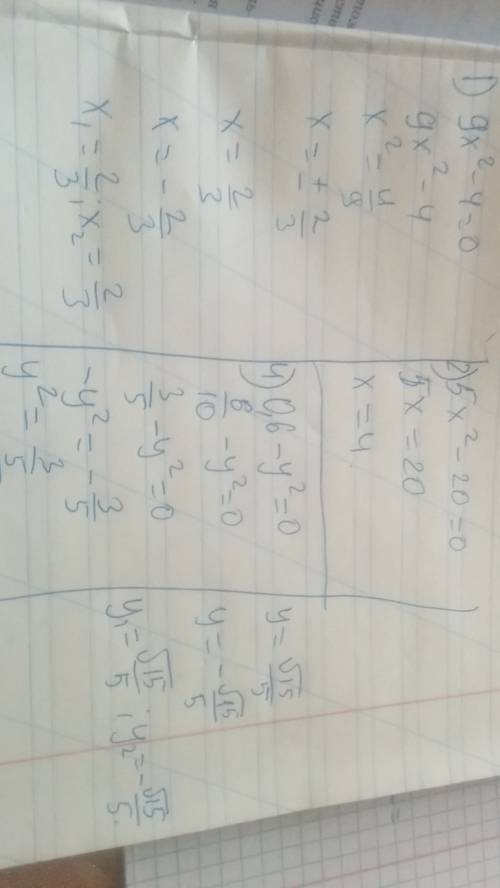 1) 9x² - 4 = 0
9x² - 4
x² = 4/9
x = ± 2/3
x = 2/3
x = - 2/3
x₁ = 2/3; x₂ = 2/3
2) 5x² - 20 = 0
5x = 20
x = 4
4) 0,6 - y² = 0
6/10 - y² = 0
3/5 - y² = 0
-y² = - 3/5
y² = 3/5
y = √15/5
y = - √15/5
y₁ = √15/5; y₂ = - √15/5